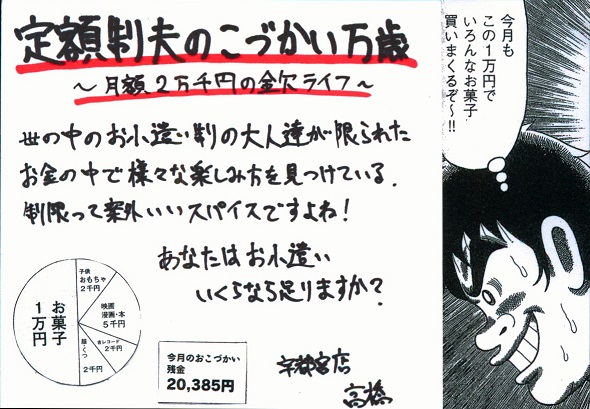 定額制夫のこづかい万歳
～月額2万千円の金欠ライフ～
世の中のお小遣い制の大人達が限られた
お金の中で様々な楽しみ方を見つけている.
制限って案外いいスパイスですよね!
あなたはお小遣い
いくらなら足りますか?
子供
おもちゃ
2千円
映画
漫画・本
5千円
古レコード
2千円
服
くつ
2千円
お菓子
1万円
今月のおこづかい
残金
20,385円
宇都宮店
高橋
今月も
この1万円で
いろんなお菓子
買いまくるぞ〜!!